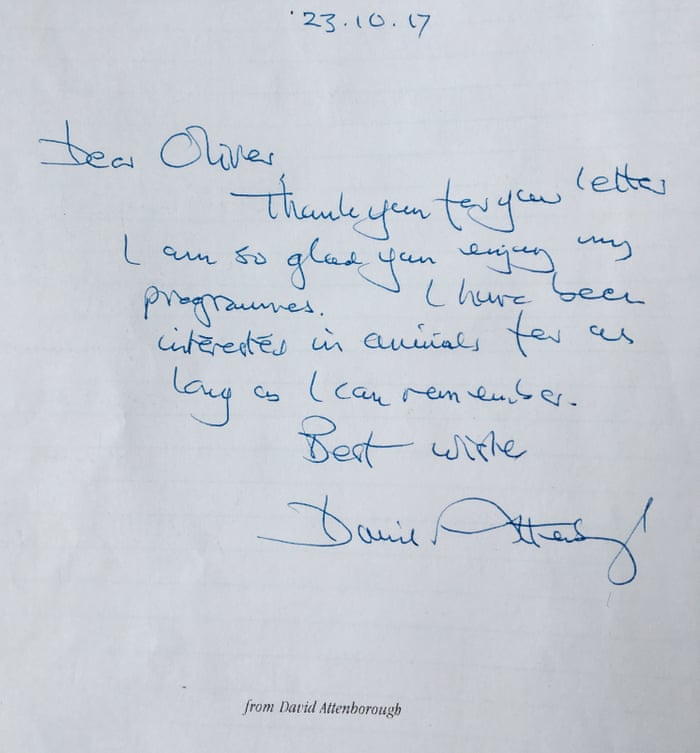 23.10.17
Dear Oliver,
Thank you for your letter
I am so glad you enjoy my
programmes. I have been
interested in animals for as
long as I can remember.
Best wishes
David Attenborough
from David Attenborough